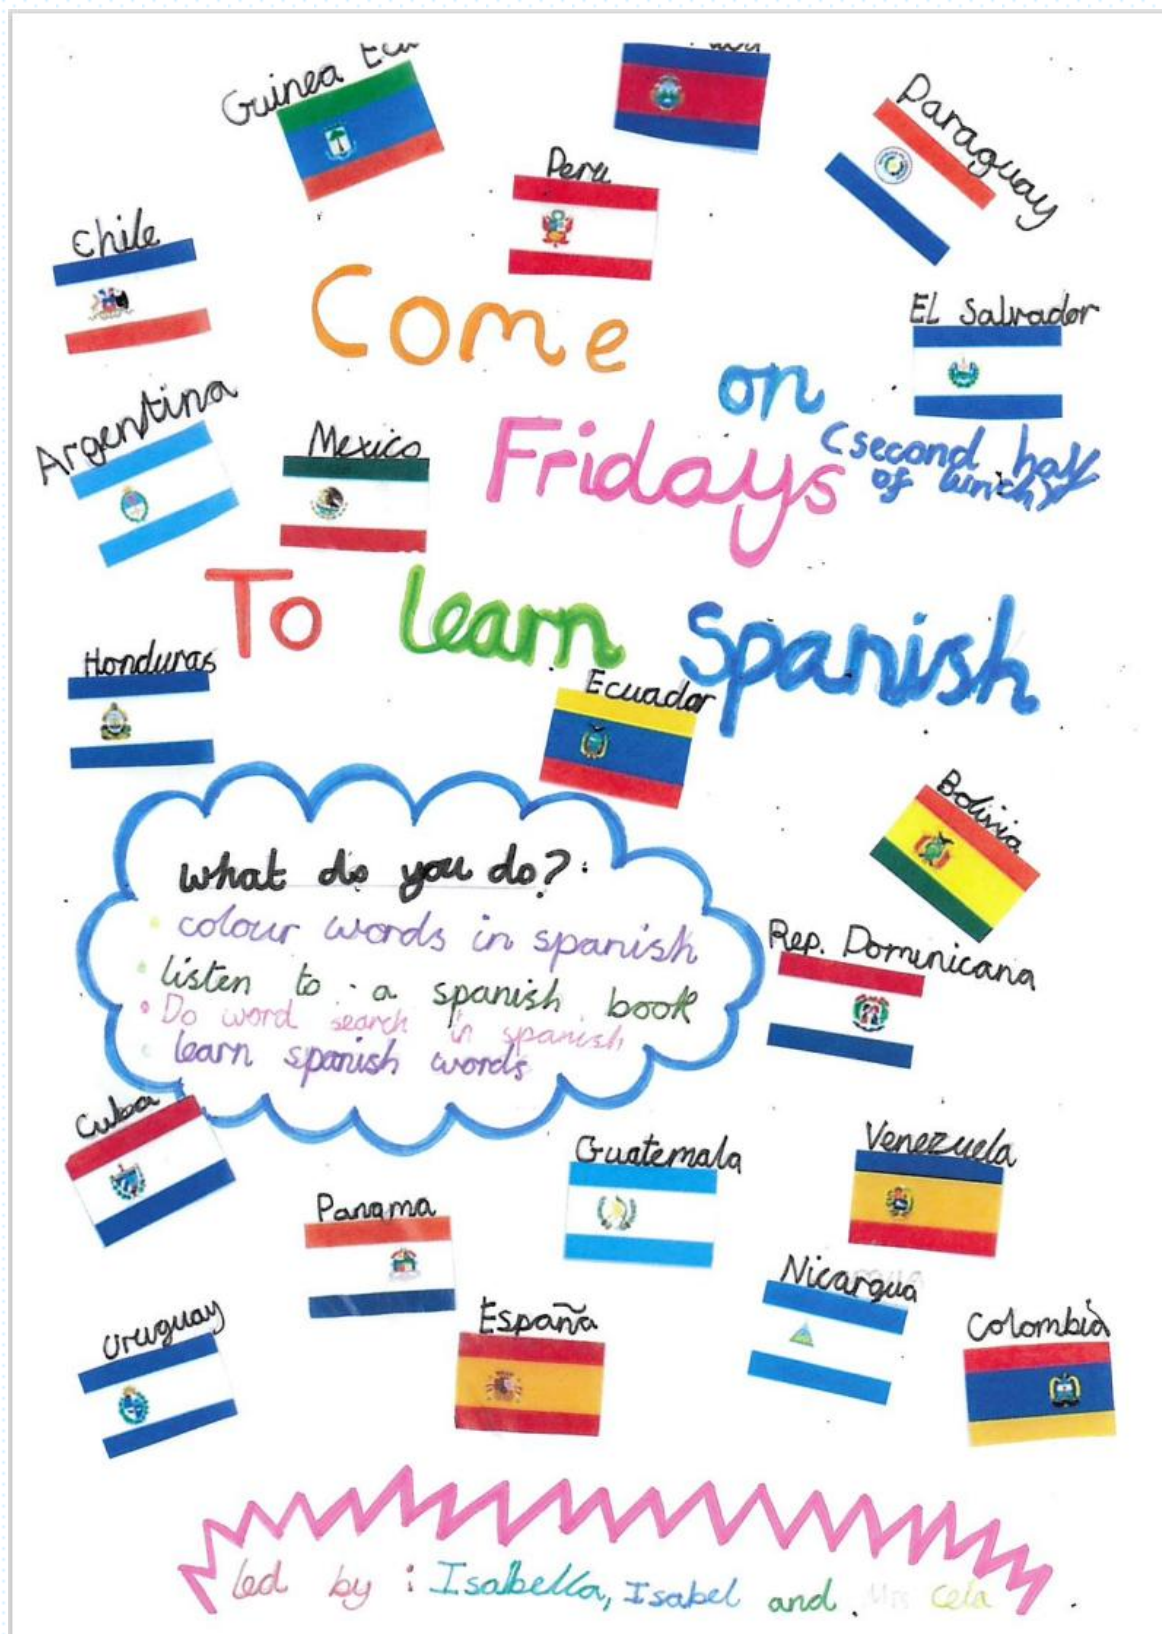 Guinea Ecu
Peru
Paraguay
Chile
Come
EL Salvador
on
Argentina
Mexico
Fridays
(second half
of lunch)
To learn Spanish
Honduras
Ecuador
Bolivia
What do you do?
• colour words in spanish
• listen to a spanish book
• Do word search in spanish
• learn spanish words
Rep. Dominicana
Cuba
Guatemala
Venezuela
Panama
Nicargua
Uruguay
España
Colombia
Led by: Isabella, Isabel and Mrs Cela